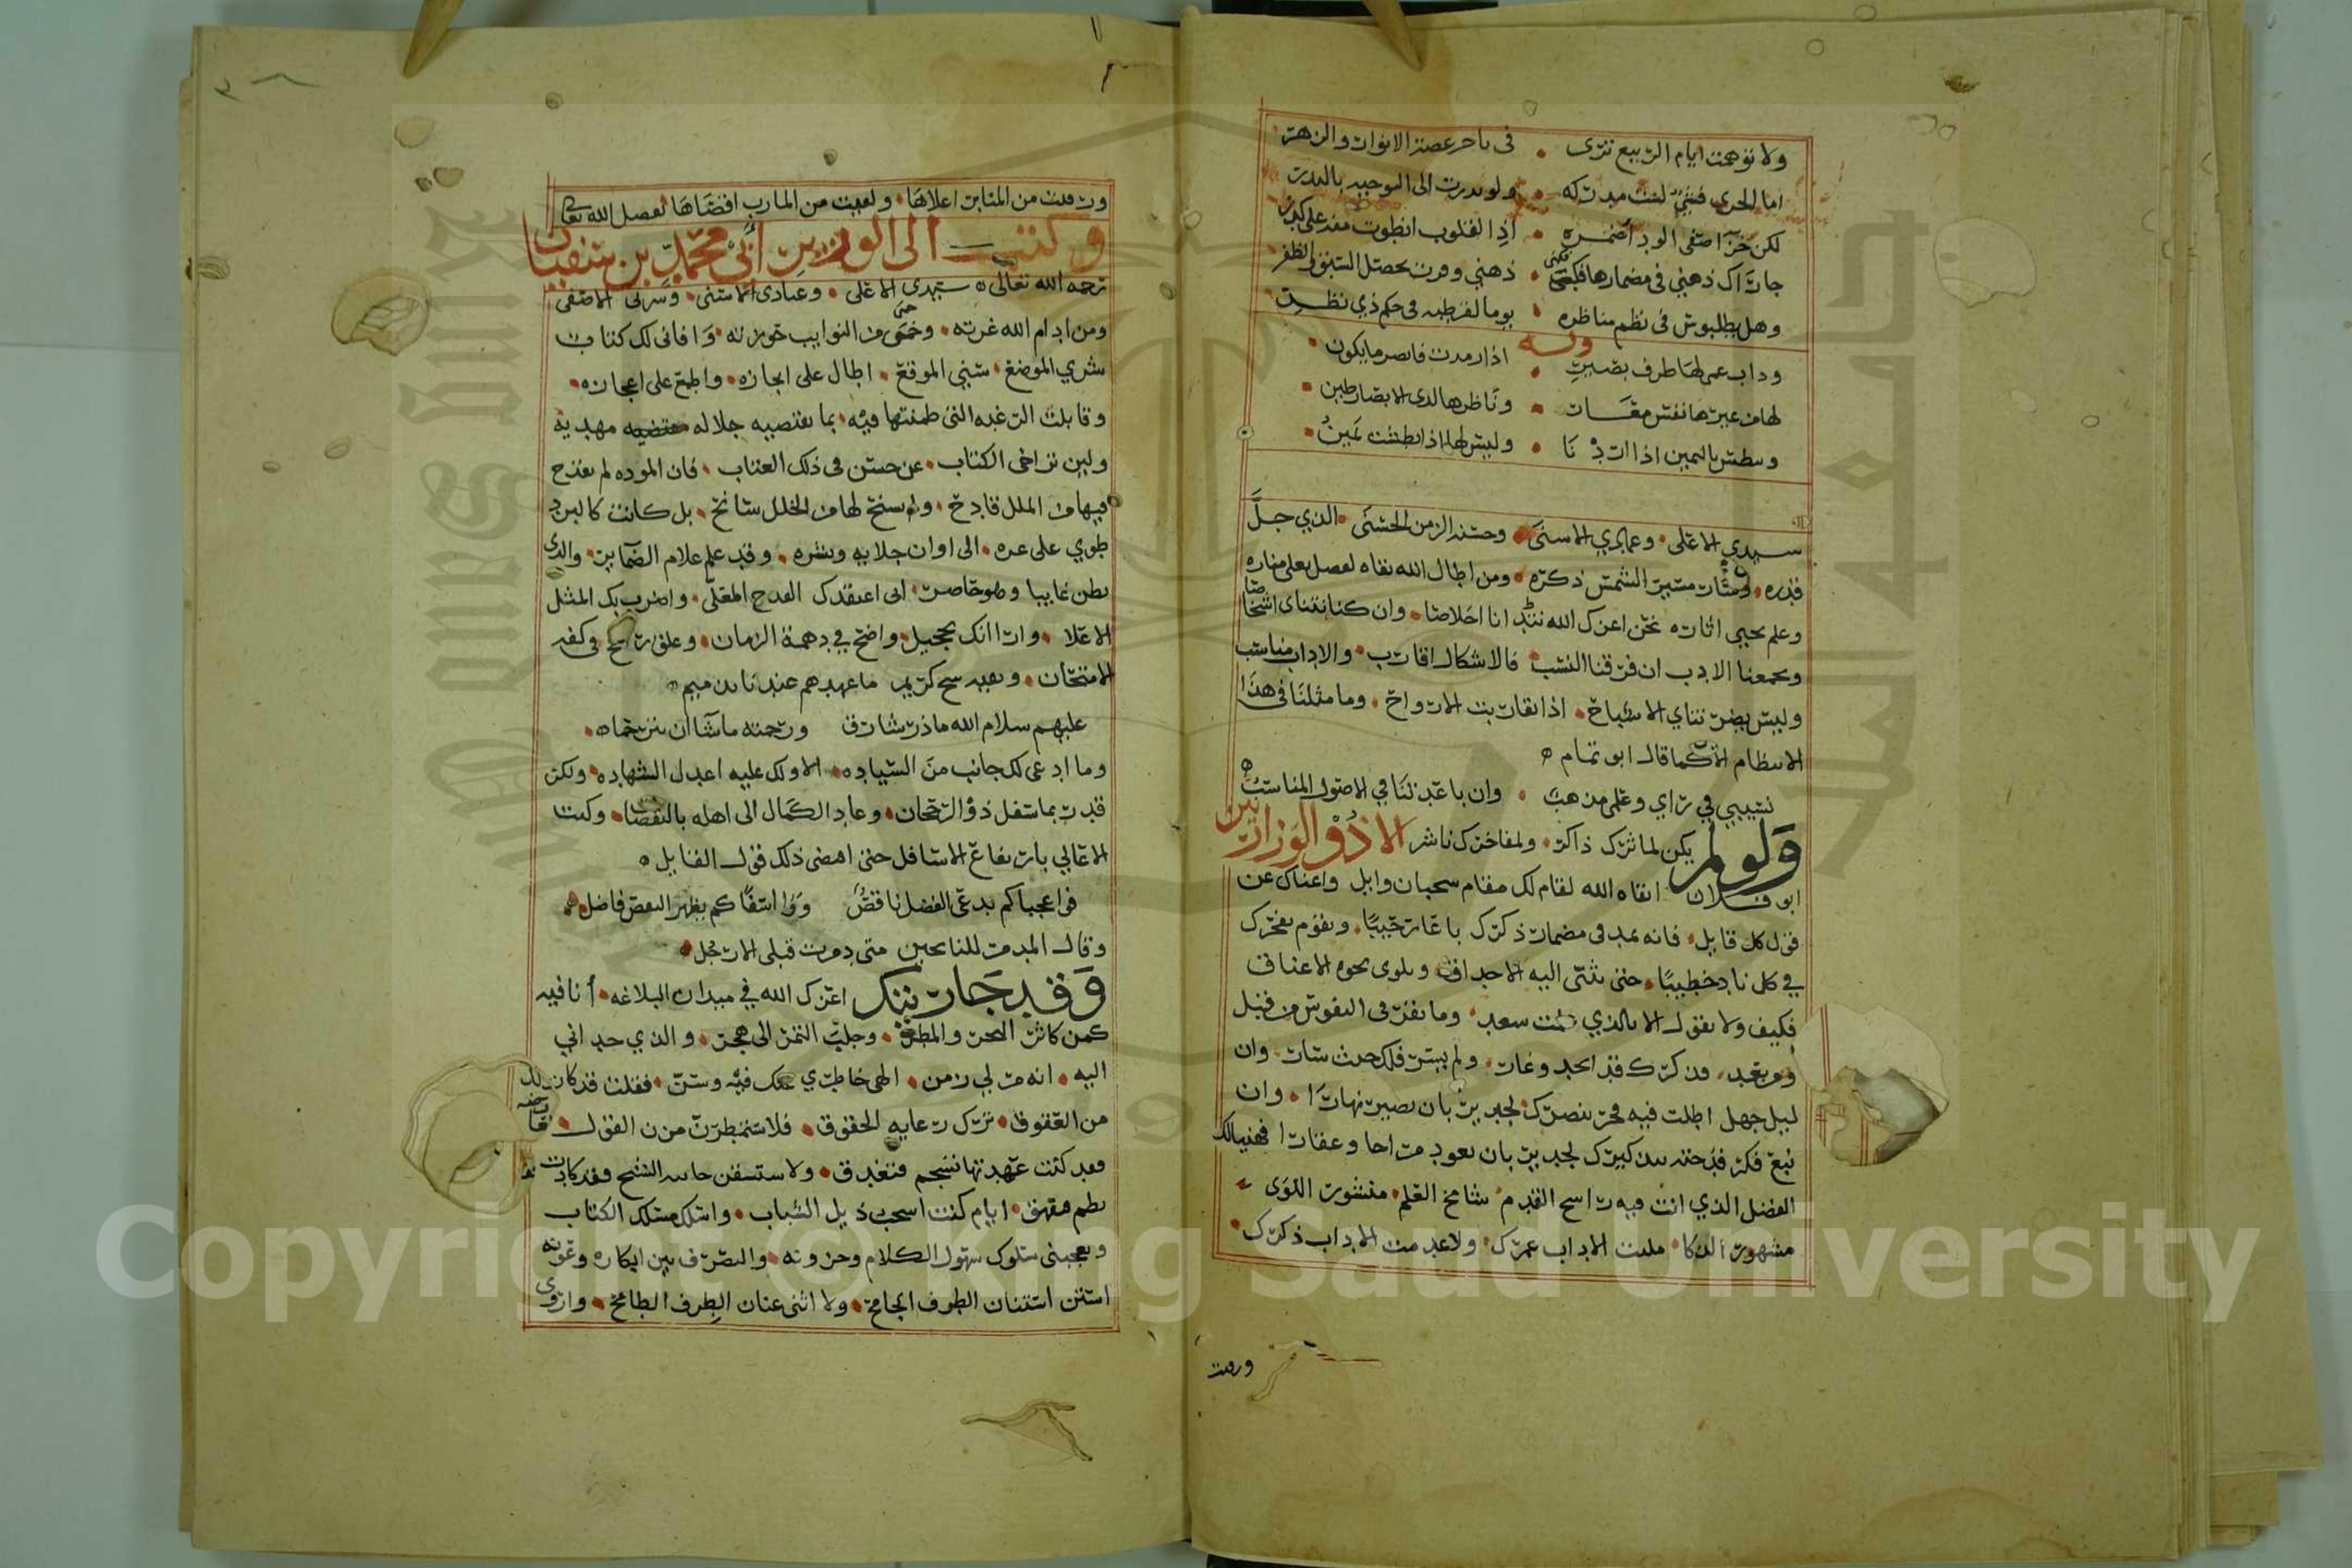 ولا توهمت ايام الربيع ترى • في ناجر غضة الانوار والزهر
اما الجزى فشئ لست مدركه • ولو بدرت الى التوجيه بالبدر
لكن جزا صفى الود اضمره • اذا القلوب انطوت منه على كدر
جاراك ذهني في مضمارها فكبى • ذهني وفزت بخصل السبق والظفر
وهل بطليوس في نظم مناظره • يوما لقرطبه في حكم ذي نظر
وله
وذات عمى لها طرف بصير • اذا رمدت فابصر ما يكون
لها من غيرها نفس معار • وناظرها لدى الابصار طين
وتبطش باليمين اذا اردنا • وليس لها اذا بطشت يمين
سيدي الاعلى • وعمادي الاسنى • وحسنة الزمن الحسنى • الذي جل
قدره • وسار مسير الشمس ذكره • ومن اطال الله بقاه لفضل يعلي مناره
وعلم يحيي اثاره نحن اعزك الله نتدانا اخلاصا • وان كنا نتناى اشخاصا
ويجمعنا الادب ان فرقنا النسب • فالاشكال اقارب • والاداب مناسب
وليس يضر تناي الاشباح • اذا تقاربت الارواح • وما مثلنا في هذا
الانتظام الا كما قال ابو تمام
نسيبي في راي وعلمي مذهبي • وان باعدتنا في الاصول المناسب
ولو لم يكن لماثرك ذاكر • ولمفاخرك ناشر الا ذو الوزارتين
ابو فلان ابقاه الله لقام لك مقام سحبان وايل واغناك عن
قول كل قايل • فانه يمد في مضمار ذكرك باعا رحيبا • ويقوم بفخرك
في كل ناد خطيبا • حتى تثنى اليه الاحداق • وتلوى نحوه الاعناق
فكيف ولا نقول الا بالذي علمت سعد • وما تقرر في النفوس من قبل
ومن بعد • فذكرك قد انجد وغار • ولم يسر فلك حيث سار • وان
ليل جهل اطلت فيه فجر تبصرك لجدير بان يصير نهارا • وان
نبع فكر قدحته بتذكيرك لجدير بان يعود مرخا وعفارا فهنيا لك
الفضل الذي انت فيه راسخ القدم • شامخ العلم • منشور اللوى
مشهور الذكا • مليت الاداب عمرك • ولا عدمت الاداب ذكرك
ورقيت
ورقيت من المراتب اعلاها • ولقيت من المارب اقصاها بفضل الله تعالى
وكتب الى الوزير أبي محمد بن سفيان
رحمه الله تعالى سيدي الاعلى • وعمادي الاسنى • وسري الاصفى
ومن ادام الله غرته • وحمى من النوايب حوزته • وافاني لك كتاب
سري الموضع • سني الموقع • اطال على ايجازه • واطمع على اعجازه
وقابلت الرغبه التي ضمنتها فيه • بما يقتضيه جلاله مهديه
ولين تراخى الكتاب • عن حسن في ذلك العتاب • فان الموده لم يقدح
فيها من الملل قادح • ولم يسنح لها من الخلل سانح • بل كانت كالبرد
طوي على غره • الى اوان جلايه ونشره • وقد علم علام الضماير • والذي
بطن غايبا وهو حاضر • اني اعتقدك القدح المعلى • واضرب بك المثل
الاعلا • وارا انك تحجيل • واضح في دهمة الزمان • وعلق راجح في كفه
الامتحان • وبقيه سح كريم ما عهدهم عندنا بذميم
عليهم سلام الله ما ذر شارق ورحمته ما شا ان يترحما
وما ادعى لك جانب من السياده • الا ولك عليه اعدل الشهاده • ولكن
قدر بما سفل ذو الرجحان • وعاد الكمال الى اهله بالنقصان • وكبت
الاعالي بارتفاع الاسافل حتى امضى ذلك قول القايل
فوا عجبا كم يدعى الفضل ناقص ووا اسفا كم يظهر النقص فاضل
وقال المدمر للناتجين متى ذمرت قبلي الارجل
وقد جاريتك اعزك الله في ميدان البلاغه • أنا فيه
كمن كاثر البحر والمطر • وجلب التمر الى هجر • والذي حداني
اليه • انه مر لي زمن • الهى خاطري عنك فيه وسن • فقلت قد كان لك
من العقوق • ترك رعايه الحقوق • فلاستمطرن من القول
فقد كنت عهدتها تسجم فتغدق • ولاستسقن
ايام كنت اسحب ذيل الشباب • واسلك مسلك الكتاب
ويعجبني سلوك سهول الكلام وحزونه • والتصرف بين ابكاره وعونه
استن استنان الطرف الجامح • ولا اثني عنان الطرف الطامح • وازوى